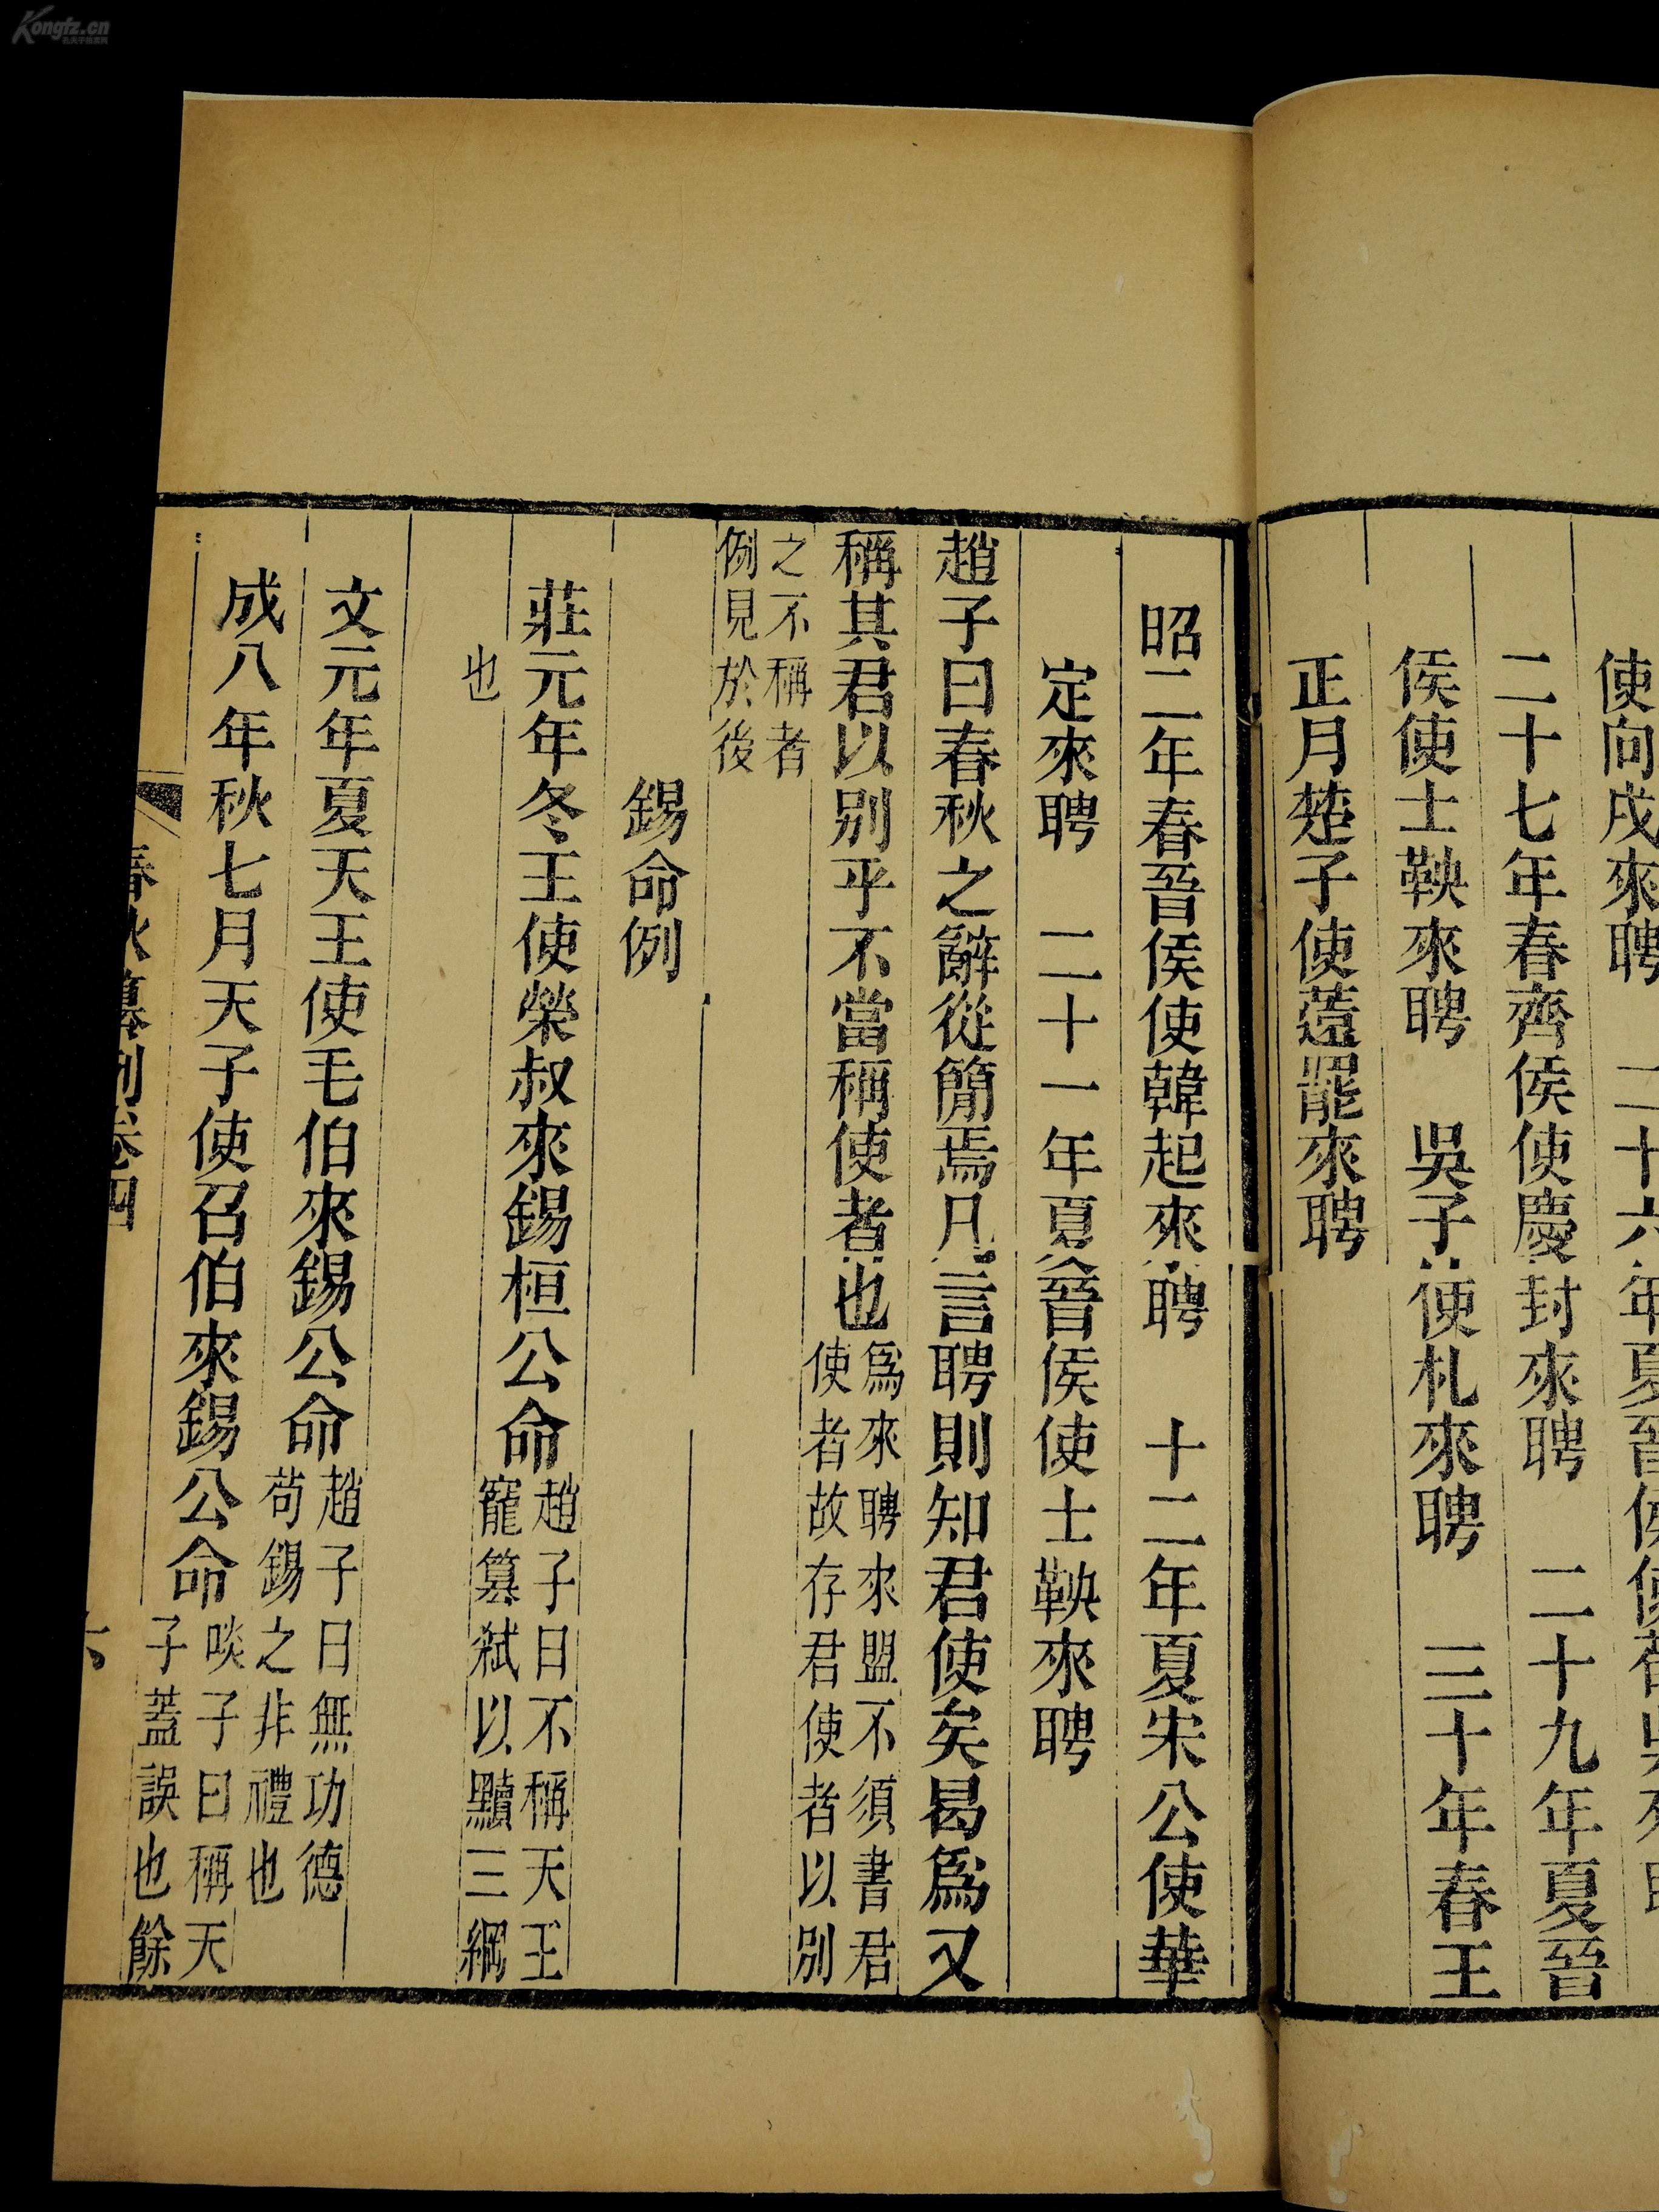 使向戌來聘　二十六年夏晉侯使荀吳來聘
二十七年春齊侯使慶封來聘　二十九年夏晉
侯使士鞅來聘　吳子使札來聘　三十年春王
正月楚子使薳罷來聘
昭二年春晉侯使韓起來聘　十二年夏宋公使華
定來聘　二十一年夏晉侯使士鞅來聘
趙子曰春秋之辭從簡焉凡言聘則知君使矣曷爲又
稱其君以別乎不當稱使者也爲來聘來盟不須書君使者故存君使者以別
之不稱者例見於後
錫命例
莊元年冬王使榮叔來錫桓公命趙子曰不稱天王寵篡弑以黷三綱
也
文元年夏天王使毛伯來錫公命趙子曰無功德茍錫之非禮也
成八年秋七月天子使召伯來錫公命啖子曰稱天子蓋誤也餘
春秋纂例卷四
六
Kongfz.cn
孔夫子旧书网